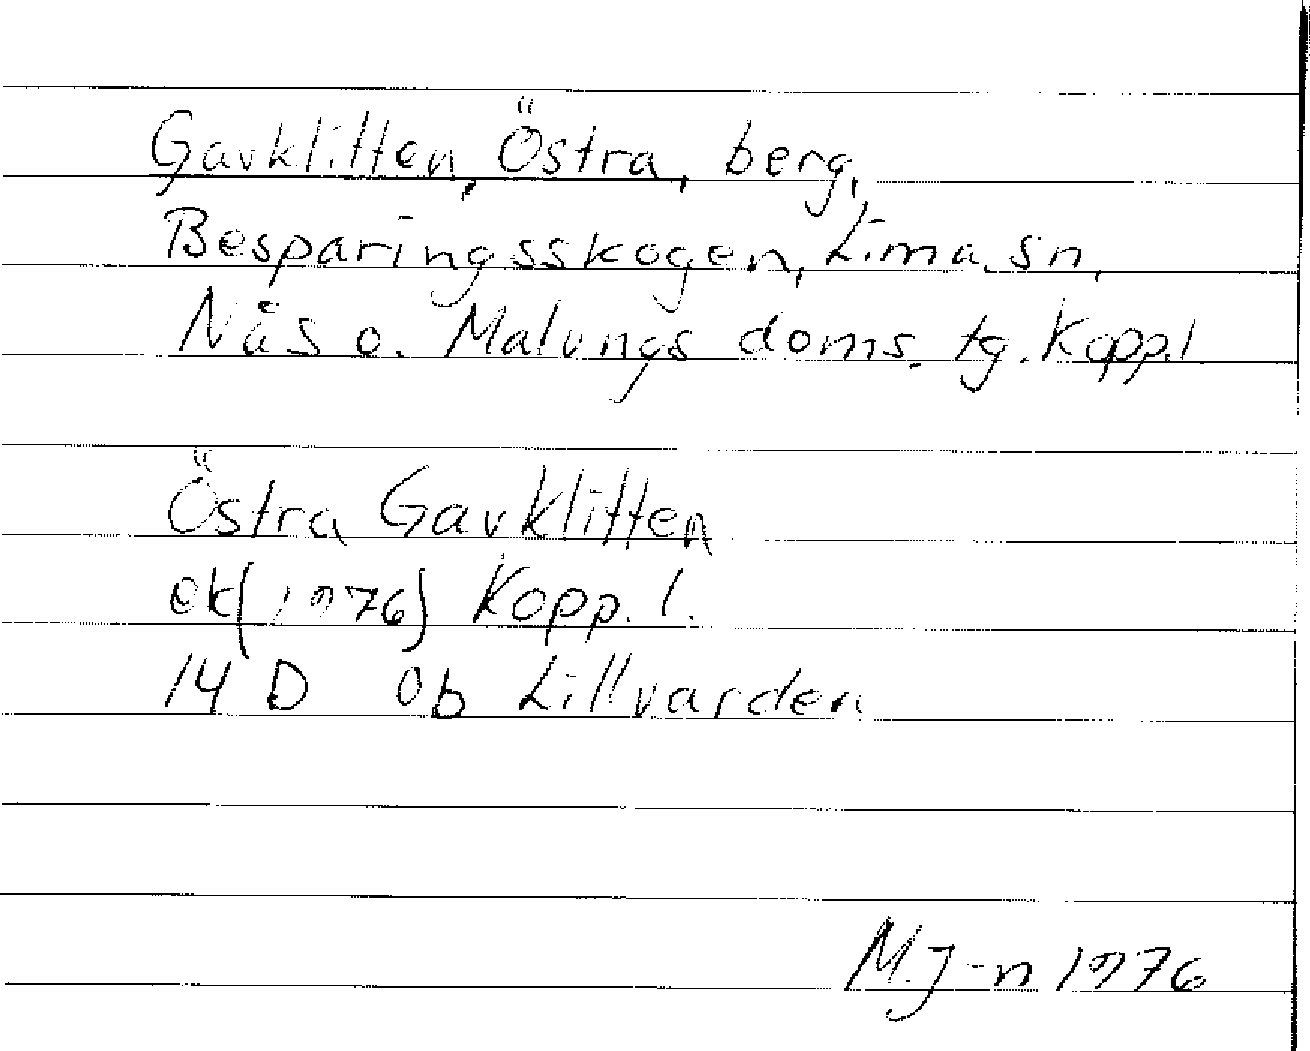 Gavklitten, Östra, berg,
Besparingsskogen, Lima sn,
Nås o. Malungs doms. tg. Kopp.l
Östra Gavklitten
ek(1976) Kopp. l.
14 D 0b Lillvarden
M.J-n 1976